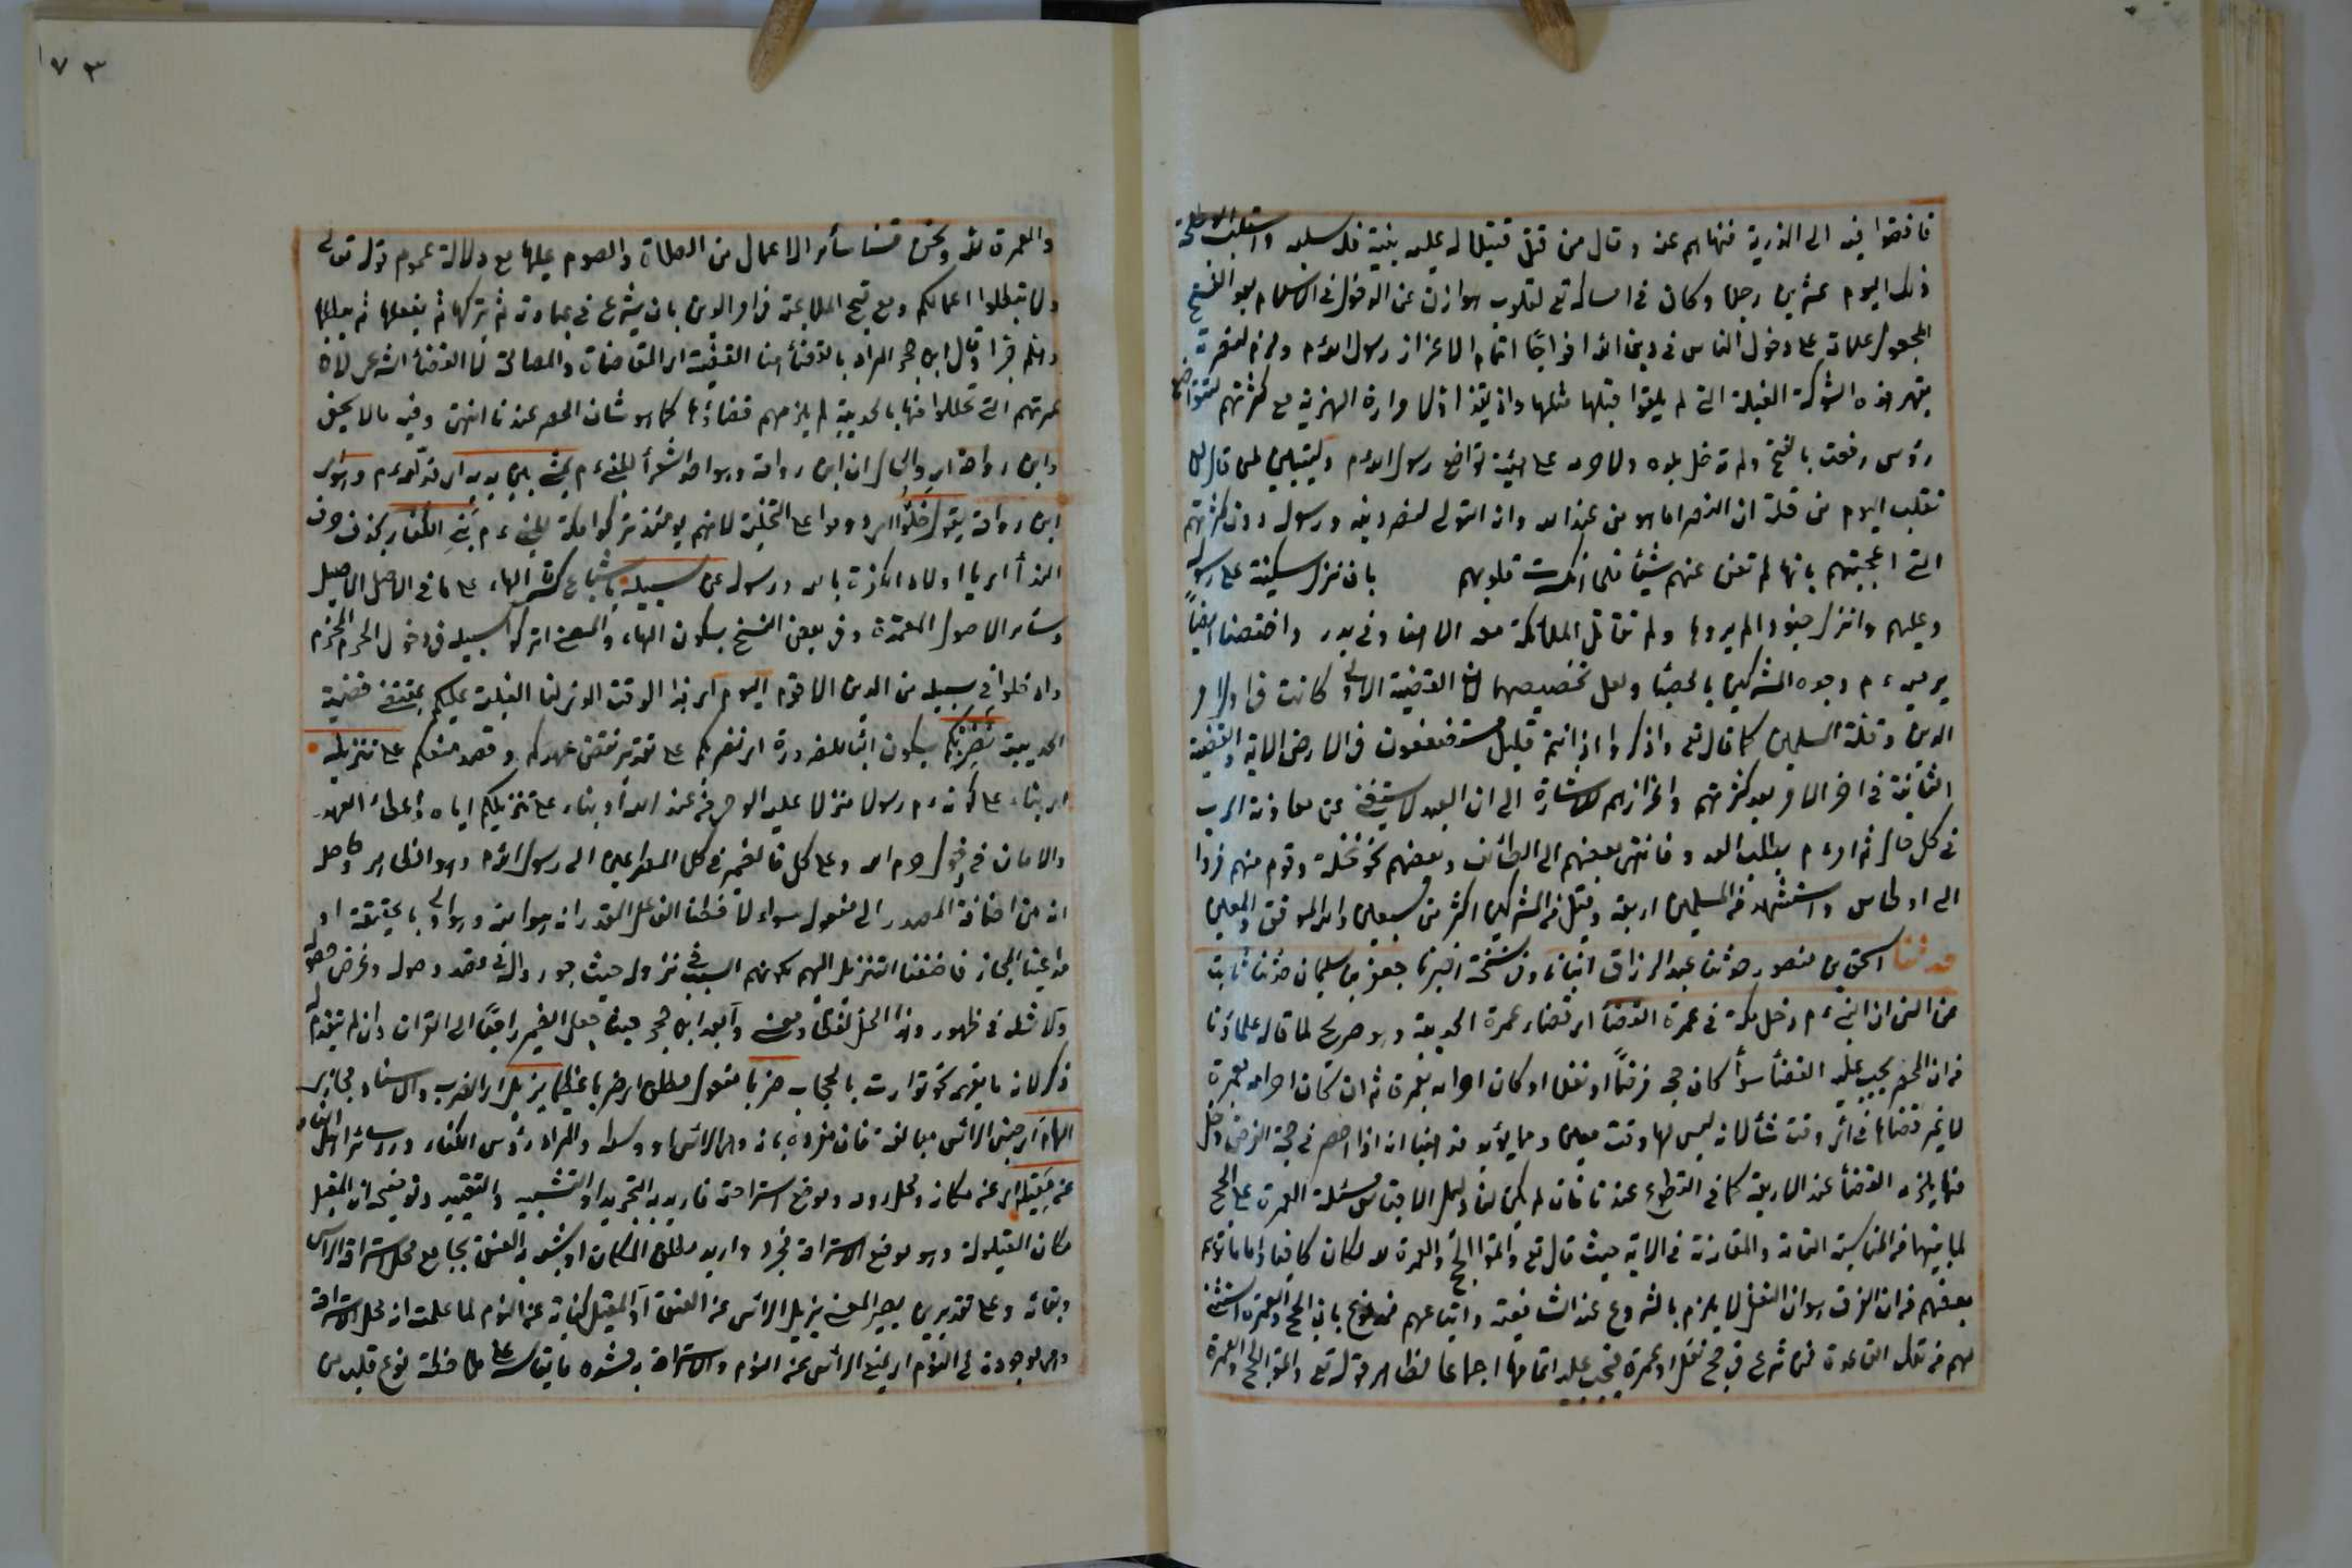 فافضوا فيه الى الذرية فنهاهم عنه وقال من قتل قتيلا له عليه بينة فله سلبه واستلب ابو طلحة
ذلك اليوم عشرين رجلا وكان في امساكه تع لقلوب هوازن عن الدخول في الاسلام بعد الفتح
المجعول علامة على دخول الناس في دين الله افواجا اتمام الاعزاز رسول الله م ومزيد لنصرته
بقهر هذه الشوكة التي لم يلقوا قبلها مثلها واذيقوا اولا مرارة الهزيمة مع كثرتهم لتتواضع
رؤس رفعت بالفتح ولم تدخل بلده ولا حرمه على هيئة تواضع رسول الله م وليتبين لمن قال لن
نغلب اليوم من قلة ان النصر انما هو من عند الله وانه المتولى لنصر دينه ورسوله دون كثرتهم
التي اعجبتهم بانها لم تغن عنهم شيئا فلما انكسرت قلوبهم بان نزل سكينته على رسوله
وعليهم وانزل جنودا لم يروها ولم تقاتل الملائكة معه الا هنا وفي بدر واختصا ايضا
برميه م وجوه المشركين بالحصباء ولعل تخصيصهما لان القضية الاولى كانت في اول امر
الدين وقلة المسلمين كما قال تع واذكروا اذ انتم قليل مستضعفون في الارض الاية والقضية
الثانية في اخر الامر بعد كثرتهم واعزازهم للاشارة الى ان العبد لا يستغني عن معاونة الرب
في كل حال ثم امر م بطلب العدو فانتهى بعضهم الى الطائف وبعضهم نحو نخلة وقوم منهم فروا
الى اوطاس واستشهد من المسلمين اربعة وقتل من المشركين اكثر من سبعين والله الموفق والمعين
حدثنا اسحق بن منصور حدثنا عبد الرزاق انبانا وفي نسخة اخبرنا جعفر بن سليمان حدثنا ثابت
عن انس ان النبي م دخل مكة في عمرة القضاء اي قضاء عمرة الحديبية وهو صريح لما قاله علماؤنا
من ان المحصر يجب عليه القضاء سواء كان حجه فرضا او نفلا او كان احرامه بعمرة ثم ان كان احرامه بعمرة
لا غير قضاها في اي وقت شاء لانه ليس لها وقت معين ومما يؤيد مذهبنا انه اذا احصر في حجة الفرض وحل
منها يلزمه القضاء عند الاربعة كما في التطوع عندنا فان لم يكن لنا دليل الا قياس مسئلة العمرة على الحج
لما بينهما من المناسبة التامة والمقارنة في الاية حيث قال تع واتموا الحج والعمرة لله لكان كافيا واما ما توهم
بعضهم من ان الفرق هو ان النفل لا يلزم بالشروع عند الشافعية واتباعهم فمدفوع بان الحج والعمرة استثني
لهم من تلك القاعدة فمن شرع في حج نفل او عمرة فيجب عليه اتمامها اجماعا لظاهر قوله تع واتموا الحج والعمرة
١٧٣
والعمرة لله ونحن قسنا سائر الاعمال من الصلاة والصوم عليها مع دلالة عموم قوله تعالى
ولا تبطلوا اعمالكم ومع قبح الملاعبة في امر الدين بان يشرع في عبادة ثم يتركها ثم يفعلها ثم يبطلها
وهلم جرا وقال ابن حجر المراد بالقضاء هنا القضية اي المقاضاة والمصالحة لا القضاء الشرعي لان
عمرتهم التي تحللوا منها بالحديبية لم يلزمهم قضاؤها كما هو شان المحصر عندنا انتهى وفيه ما لا يخفى
وابن رواحة اي والحال ان ابن رواحة وهو احد الشعراء للنبي م يمشي بين يديه اي قدامه م وهو اي
ابن رواحة يقول خلوا اي دوموا على التخلية لانهم يومئذ تركوا مكة للنبي م بني الكفار بحذف حرف
النداء اي يا اولاد الكفرة بالله ورسوله عن سبيله باشباع كسرة الهاء على ما في الاصل الاصيل
وسائر الاصول المعتمدة وفي بعض النسخ بسكون الهاء والمعنى اتركوا سبيله في دخول الحرم المحترم
وادخلوا في سبيله من الدين الاقوم اليوم اي هذا الوقت الذي لنا الغلبة عليكم بمقتضى قضية
الحديبية نضربكم بسكون الباء للضرورة اي نضربكم على تقدير نقض عهدكم وقصد منعكم على تنزيله
اي بناء على كونه م رسولا منزلا عليه الوحي من عند الله او بناء على تنزيلكم اياه واعطاء العهد
والامان في دخول حرم الله وعلى كل فالضمير في كل المصراعين الى رسول الله م وهو الظاهر وحاصله
انه من اضافة المصدر الى مفعوله سواء لاحظنا الفاعل المقدر انه هو الله وهو اولى بالحقيقة او
راعينا المجاز فاضفنا التنزيل اليهم لكونهم السبب في نزوله حيث جوزوا له في قصد وصوله وغرض حصوله
ولا شك في ظهور هذا الحل لفظا ومعنى وابعد ابن حجر حيث جعل الضمير راجعا الى القران وان لم يتقدم
ذكره لانه ما يفهم نحو توارت بالحجاب ضربا مفعول مطلق اي ضربا عظيما يزيل اي الضرب والاسناد مجازي
الهام اي جنس الراس مبالغة فان مفرده هامة وهي الراس او وسطه والمراد رؤس الكفار ورؤساء اهل النار
عن مقيله اي عن مكانه ومحل روحه وموضع استراحته فاريد به التجريد او التشبيه والتقييد وتوضيحه ان المقيل
مكان القيلولة وهو موضع الاستراحة فجرد واريد مطلق المكان او شبه به العنق بجامع محل استراحة الراس
وبقائه وعلى تقديرين يصير المعنى يزيل الراس عن العنق او المقيل كناية عن النوم لما علمت انه محل الاستراحة
وهي موجودة في النوم اي يمنع الراس عن النوم والاستراحة به لشدة ما يقاسيه على ملاحظة نوع قلب من